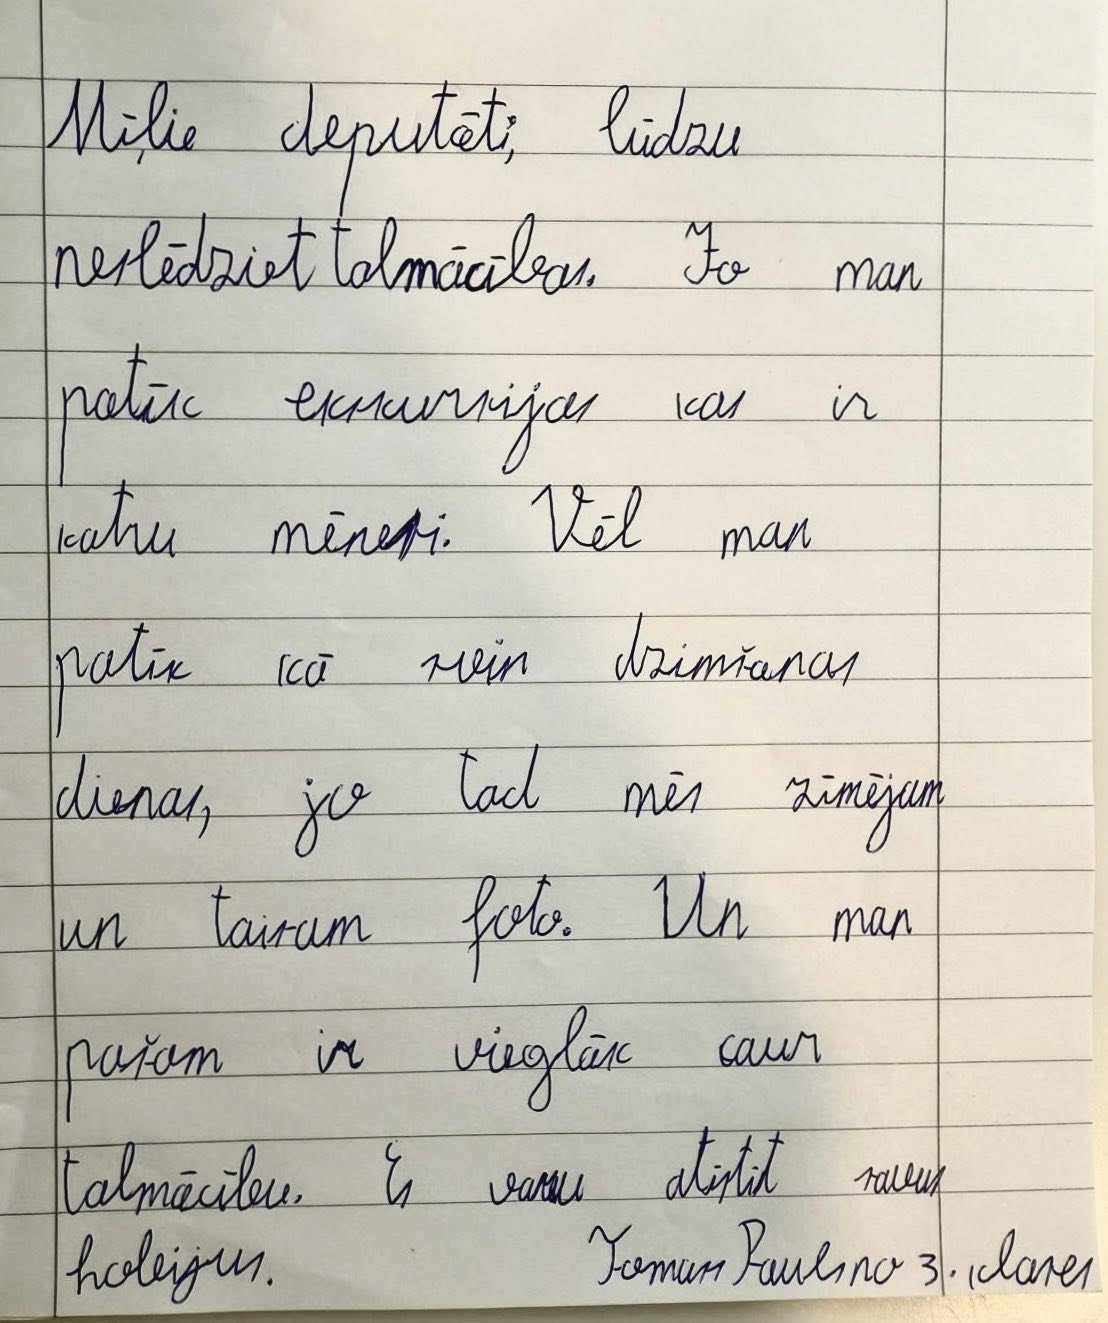 Mīļie deputāti, lūdzu
neslēdziet tālmācības. Jo man
patīk ekskursijas kas ir
katru mēnesi. Vēl man
patīk kā svin dzimšanas
dienas, jo tad mēs zīmējam
un taisam foto. Un man
pašam ir vieglāk caur
tālmācību. Es varu attīstīt savus
hobijus. Tomass Paulsno 3. klases